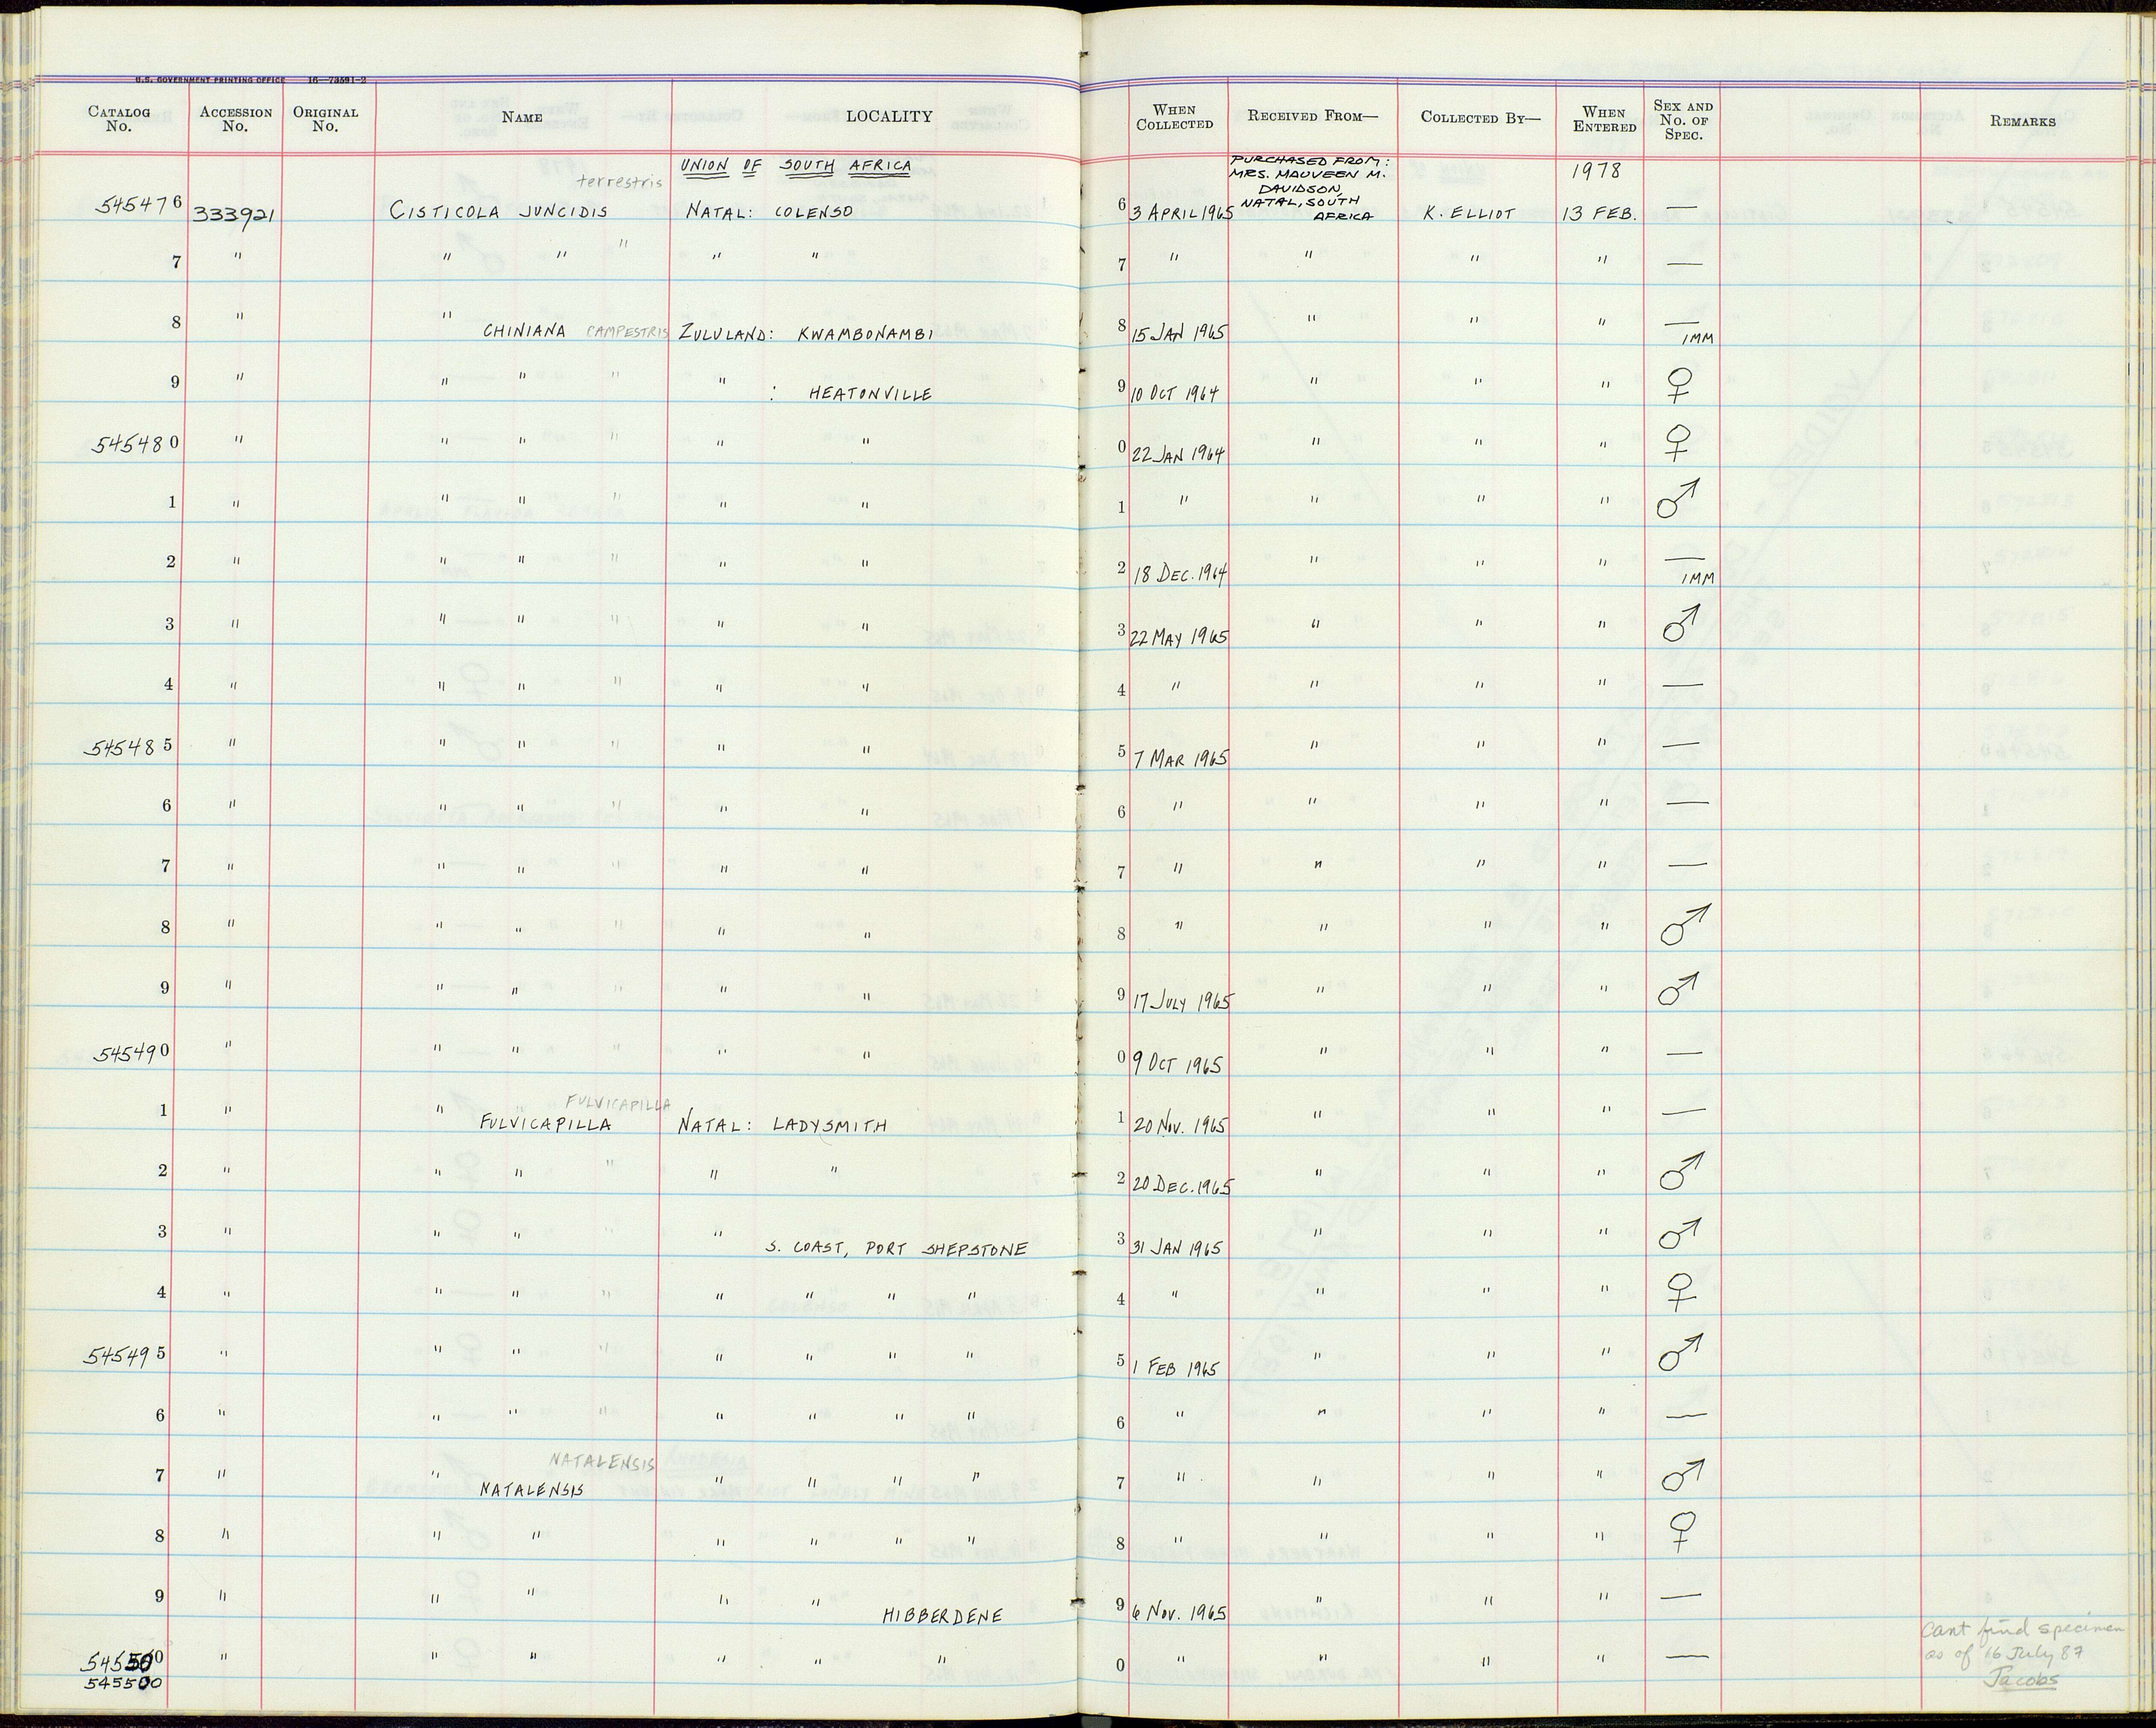 U.S. GOVERNMENT PRINTING OFFICE 16—73591-2
CATALOG No. ACCESSION No. ORIGINAL No. NAME LOCALITY WHEN COLLECTED RECEIVED FROM— COLLECTED BY— WHEN ENTERED SEX AND No. OF SPEC. REMARKS
UNION OF SOUTH AFRICA PURCHASED FROM: 1978
terrestris MRS. MAUVEEN M.
DAVIDSON,
NATAL, SOUTH
545476 333921 CISTICOLA JUNCIDIS NATAL: COLENSO 6 3 APRIL 1965 AFRICA K. ELLIOT 13 FEB. —
7 " " " " " " 7 " " " " —
8 " " CHINIANA CAMPESTRIS ZULULAND: KWAMBONAMBI 8 15 JAN 1965 " " " — IMM
9 " " " " " : HEATONVILLE 9 10 OCT 1964 " " " ♀
545480 " " " " " " 0 22 JAN 1964 " " " ♀
1 " " " " " " 1 " " " " ♂
2 " " " " " " 2 18 DEC. 1964 " " " — IMM
3 " " " " " " 3 22 MAY 1965 " " " ♂
4 " " " " " " 4 " " " " —
545485 " " " " " " 5 7 MAR 1965 " " " —
6 " " " " " " 6 " " " " —
7 " " " " " " 7 " " " " —
8 " " " " " " 8 " " " " ♂
9 " " " " " " 9 17 JULY 1965 " " " ♂
545490 " " " " " " 0 9 OCT 1965 " " " —
FULVICAPILLA
1 " " " FULVICAPILLA NATAL: LADYSMITH 1 20 NOV. 1965 " " " —
2 " " " " " " 2 20 DEC. 1965 " " " ♂
3 " " " " " S. COAST, PORT SHEPSTONE 3 31 JAN 1965 " " " ♂
4 " " " " " " " " 4 " " " " ♀
545495 " " " " " " " " 5 1 FEB 1965 " " " ♂
6 " " " " " " " " 6 " " " " —
NATALENSIS
7 " " NATALENSIS " " " " 7 " " " " ♂
8 " " " " " " " 8 " " " " ♀
9 " " " " " HIBBERDENE 9 6 NOV. 1965 " " " —
545500 " " " " " " 0 " " " " — Cant find specimen
545500 as of 16 July 87
Jacobs